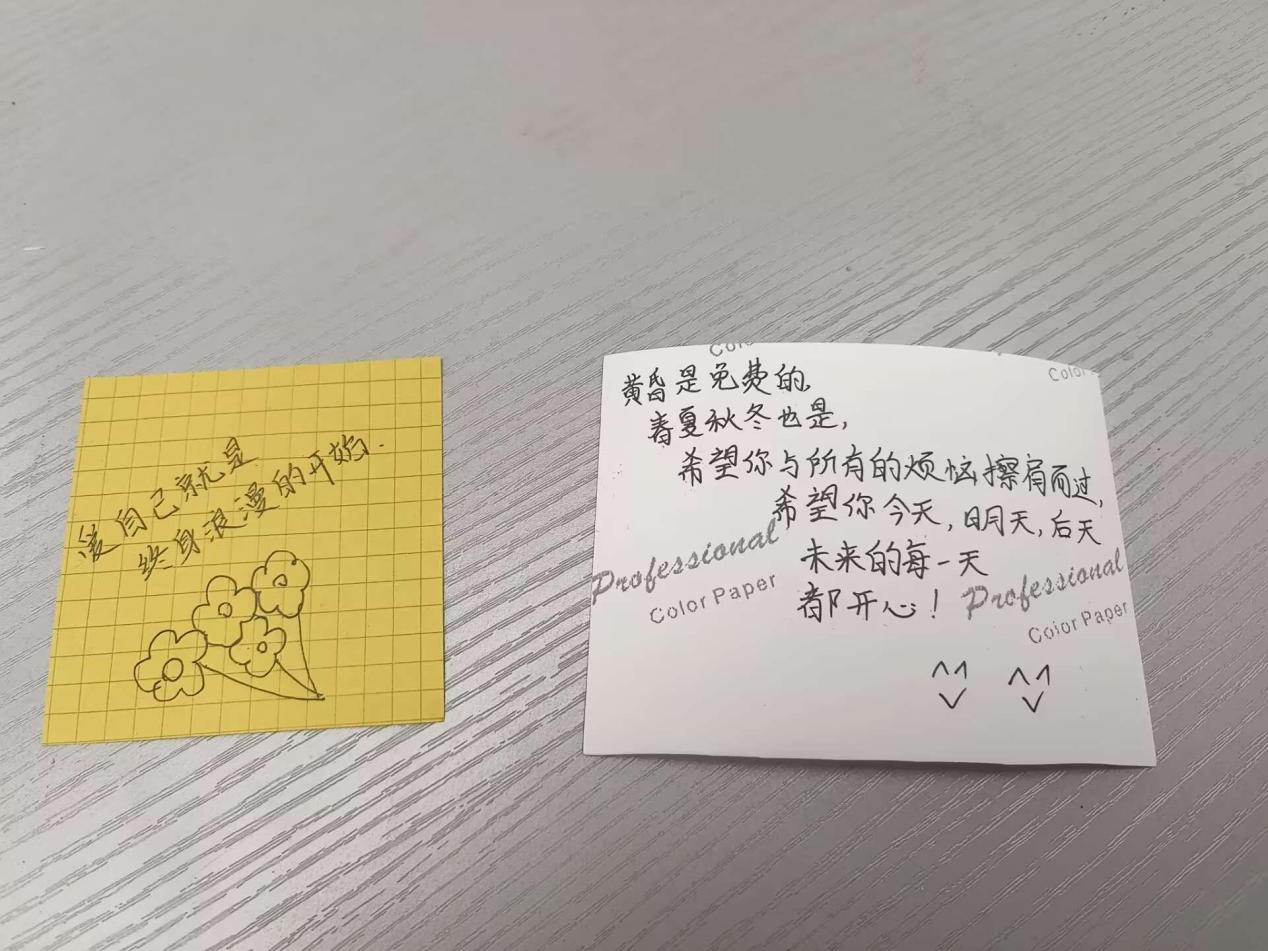 爱自己就是
终身浪漫的开始.
黄昏是免费的,
春夏秋冬也是,
希望你与所有的烦恼擦肩而过,
希望你今天,明天,后天
未来的每一天
都开心!
Professional
Color Paper
Professional
Color Paper
Color